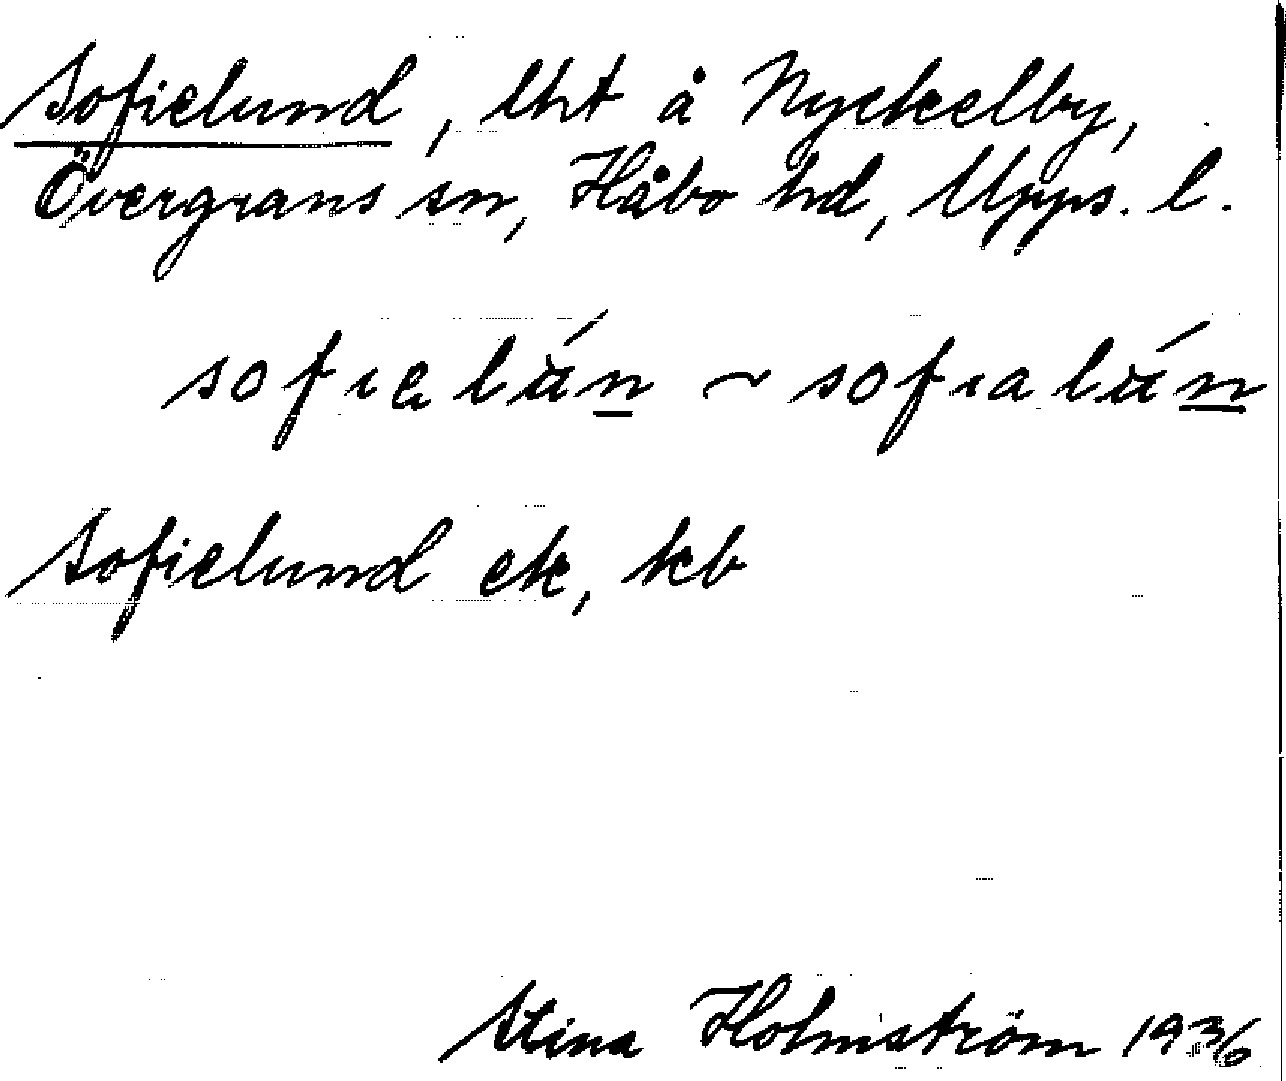 Sofielund, lht å Nyckelby,
Övergrans sn, Håbo hd, Upps. l.
sofielún ~ sofialún
Sofielund ek, kb
Stina Holmström 1936